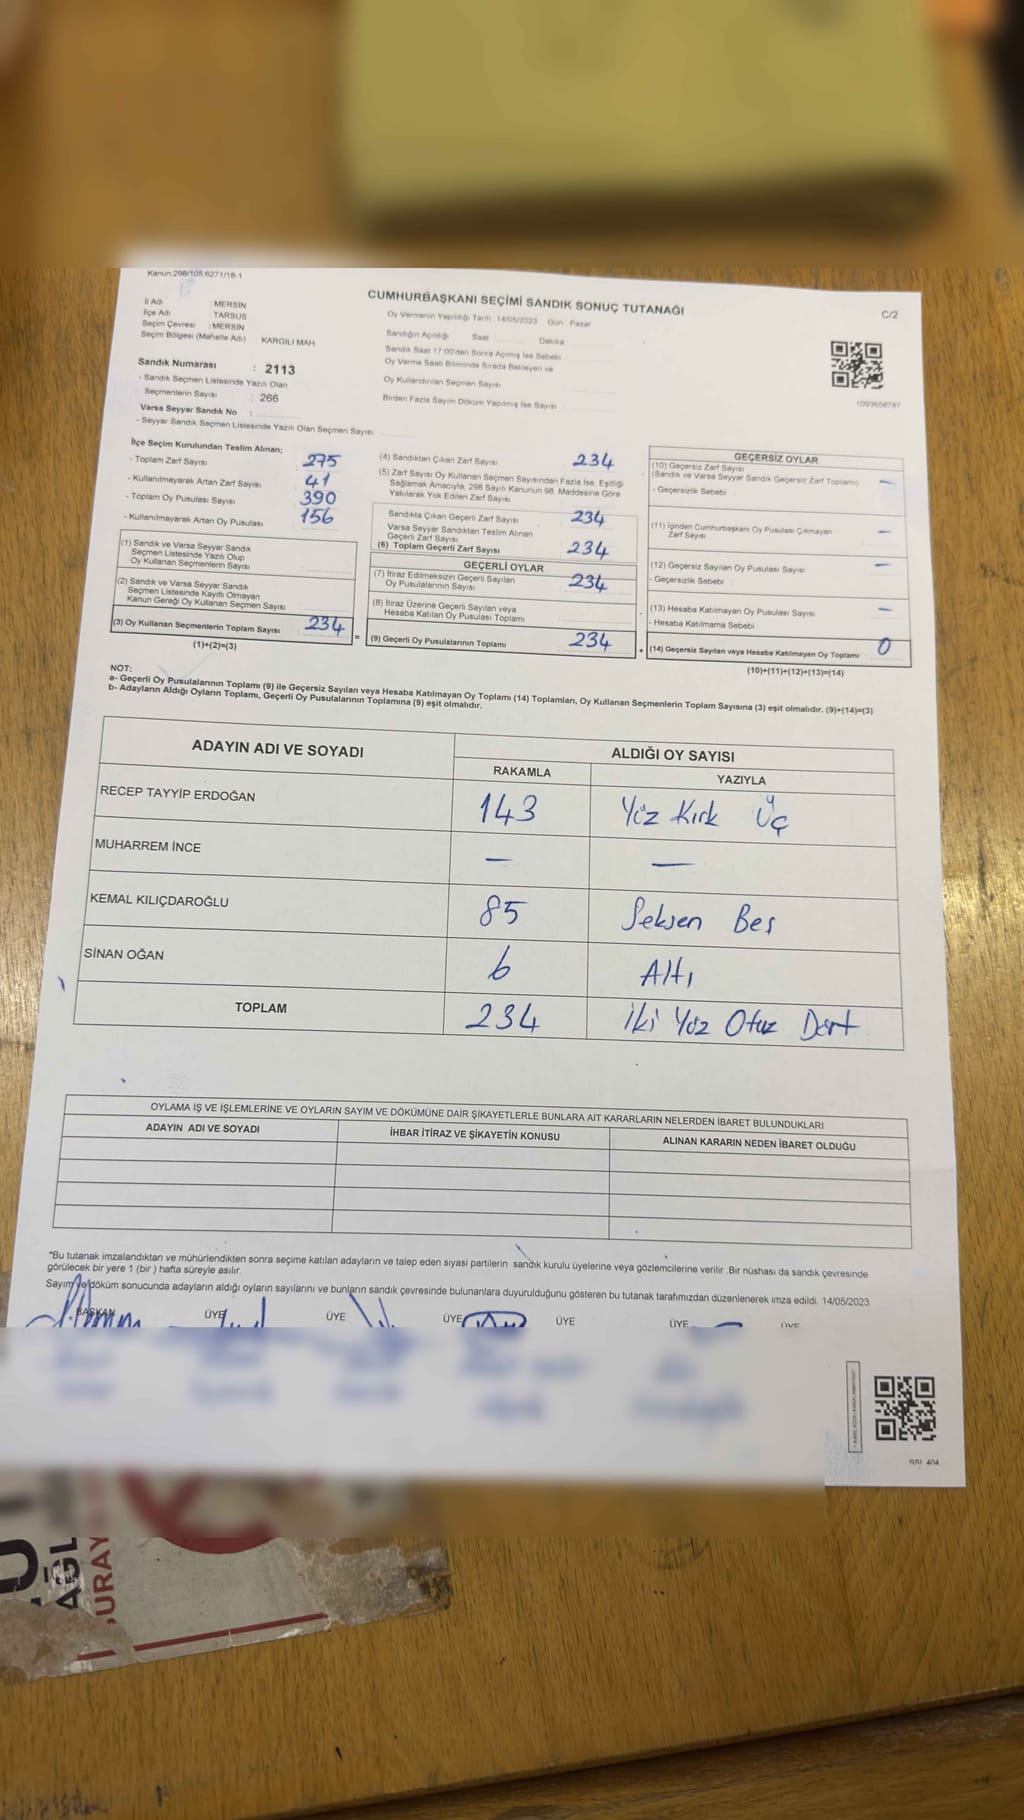 Kanun:298/105;6271/18-1
İl Adı : MERSİN
İlçe Adı : TARSUS
Seçim Çevresi : MERSİN
Seçim Bölgesi (Mahalle Adı) : KARGILI MAH
Sandık Numarası : 2113
- Sandık Seçmen Listesinde Yazılı Olan
Seçmenlerin Sayısı : 266
Varsa Seyyar Sandık No :
- Seyyar Sandık Seçmen Listesinde Yazılı Olan Seçmen Sayısı
CUMHURBAŞKANI SEÇİMİ SANDIK SONUÇ TUTANAĞI
Oy Vermenin Yapıldığı Tarih :14/05/2023 Gün : Pazar
Sandığın Açıldığı Saat Dakika
Sandık Saat 17:00'den Sonra Açılmış İse Sebebi
Oy Verme Saati Bitiminde Sırada Bekleyen ve
Oy Kullandırılan Seçmen Sayısı
Birden Fazla Sayım Döküm Yapılmış İse Sayısı
C/2
1093656787
İlçe Seçim Kurulundan Teslim Alınan;
- Toplam Zarf Sayısı 275
- Kullanılmayarak Artan Zarf Sayısı 41
- Toplam Oy Pusulası Sayısı 390
- Kullanılmayarak Artan Oy Pusulası 156
(1) Sandık ve Varsa Seyyar Sandık
Seçmen Listesinde Yazılı Olup
Oy Kullanan Seçmenlerin Sayısı
(2) Sandık ve Varsa Seyyar Sandık
Seçmen Listesinde Kayıtlı Olmayan
Kanun Gereği Oy Kullanan Seçmen Sayısı
(3) Oy Kullanan Seçmenlerin Toplam Sayısı 234
(1)+(2)=(3)
(4) Sandıktan Çıkan Zarf Sayısı 234
(5) Zarf Sayısı Oy Kullanan Seçmen Sayısından Fazla İse, Eşitliği
Sağlamak Amacıyla, 298 Sayılı Kanunun 98. Maddesine Göre
Yakılarak Yok Edilen Zarf Sayısı
Sandıkta Çıkan Geçerli Zarf Sayısı 234
Varsa Seyyar Sandıktan Teslim Alınan
Geçerli Zarf Sayısı
(6) Toplam Geçerli Zarf Sayısı 234
GEÇERLİ OYLAR
(7) İtiraz Edilmeksizin Geçerli Sayılan
Oy Pusulalarının Sayısı 234
(8) İtiraz Üzerine Geçerli Sayılan veya
Hesaba Katılan Oy Pusulası Toplamı
= (9) Geçerli Oy Pusulalarının Toplamı 234
GEÇERSİZ OYLAR
(10) Geçersiz Zarf Sayısı
(Sandık ve Varsa Seyyar Sandık Geçersiz Zarf Toplamı) —
- Geçersizlik Sebebi
(11) İçinden Cumhurbaşkanı Oy Pusulası Çıkmayan
Zarf Sayısı —
(12) Geçersiz Sayılan Oy Pusulası Sayısı —
- Geçersizlik Sebebi
(13) Hesaba Katılmayan Oy Pusulası Sayısı —
- Hesaba Katılmama Sebebi
+ (14) Geçersiz Sayılan veya Hesaba Katılmayan Oy Toplamı 0
(10)+(11)+(12)+(13)=(14)
NOT:
a- Geçerli Oy Pusulalarının Toplamı (9) ile Geçersiz Sayılan veya Hesaba Katılmayan Oy Toplamı (14) Toplamları, Oy Kullanan Seçmenlerin Toplam Sayısına (3) eşit olmalıdır. (9)+(14)=(3)
b- Adayların Aldığı Oyların Toplamı, Geçerli Oy Pusulalarının Toplamına (9) eşit olmalıdır.
ADAYIN ADI VE SOYADI ALDIĞI OY SAYISI
RAKAMLA YAZIYLA
RECEP TAYYİP ERDOĞAN 143 Yüz Kırk Üç
MUHARREM İNCE — —
KEMAL KILIÇDAROĞLU 85 Seksen Beş
SİNAN OĞAN 6 Altı
TOPLAM 234 İki Yüz Otuz Dört
OYLAMA İŞ VE İŞLEMLERİNE VE OYLARIN SAYIM VE DÖKÜMÜNE DAİR ŞİKAYETLERLE BUNLARA AİT KARARLARIN NELERDEN İBARET BULUNDUKLARI
ADAYIN ADI VE SOYADI İHBAR İTİRAZ VE ŞİKAYETİN KONUSU ALINAN KARARIN NEDEN İBARET OLDUĞU
*Bu tutanak imzalandıktan ve mühürlendikten sonra seçime katılan adayların ve talep eden siyasi partilerin sandık kurulu üyelerine veya gözlemcilerine verilir .Bir nüshası da sandık çevresinde
görülecek bir yere 1 (bir ) hafta süreyle asılır.
Sayım ve döküm sonucunda adayların aldığı oyların sayılarını ve bunların sandık çevresinde bulunanlara duyurulduğunu gösteren bu tutanak tarafımızdan düzenlenerek imza edildi. 14/05/2023
BAŞKAN ÜYE ÜYE ÜYE ÜYE ÜYE ÜYE